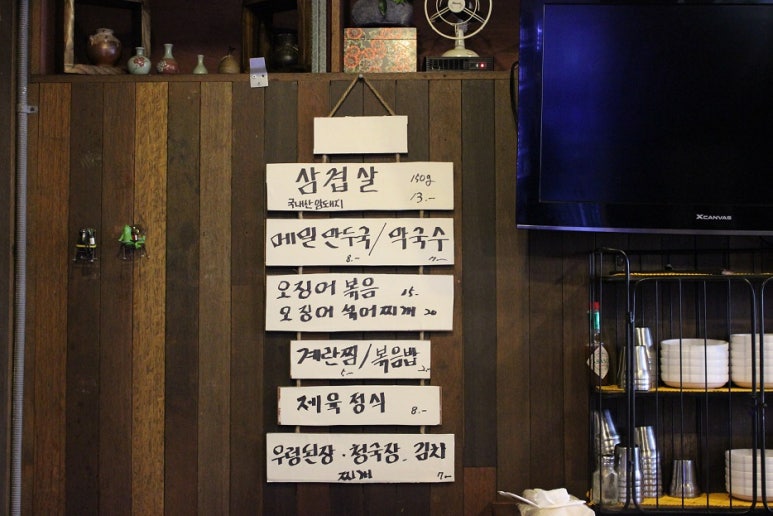 삼겹살 150g
국내산 암돼지 13.-
메밀 만두국/막국수
8.- 7.-
오징어 볶음 15.-
오징어 섞어찌개 20
계란찜/볶음밥
5.- 2.-
제육정식 8.-
우렁된장·청국장. 김치
찌개 7.-
XCANVAS